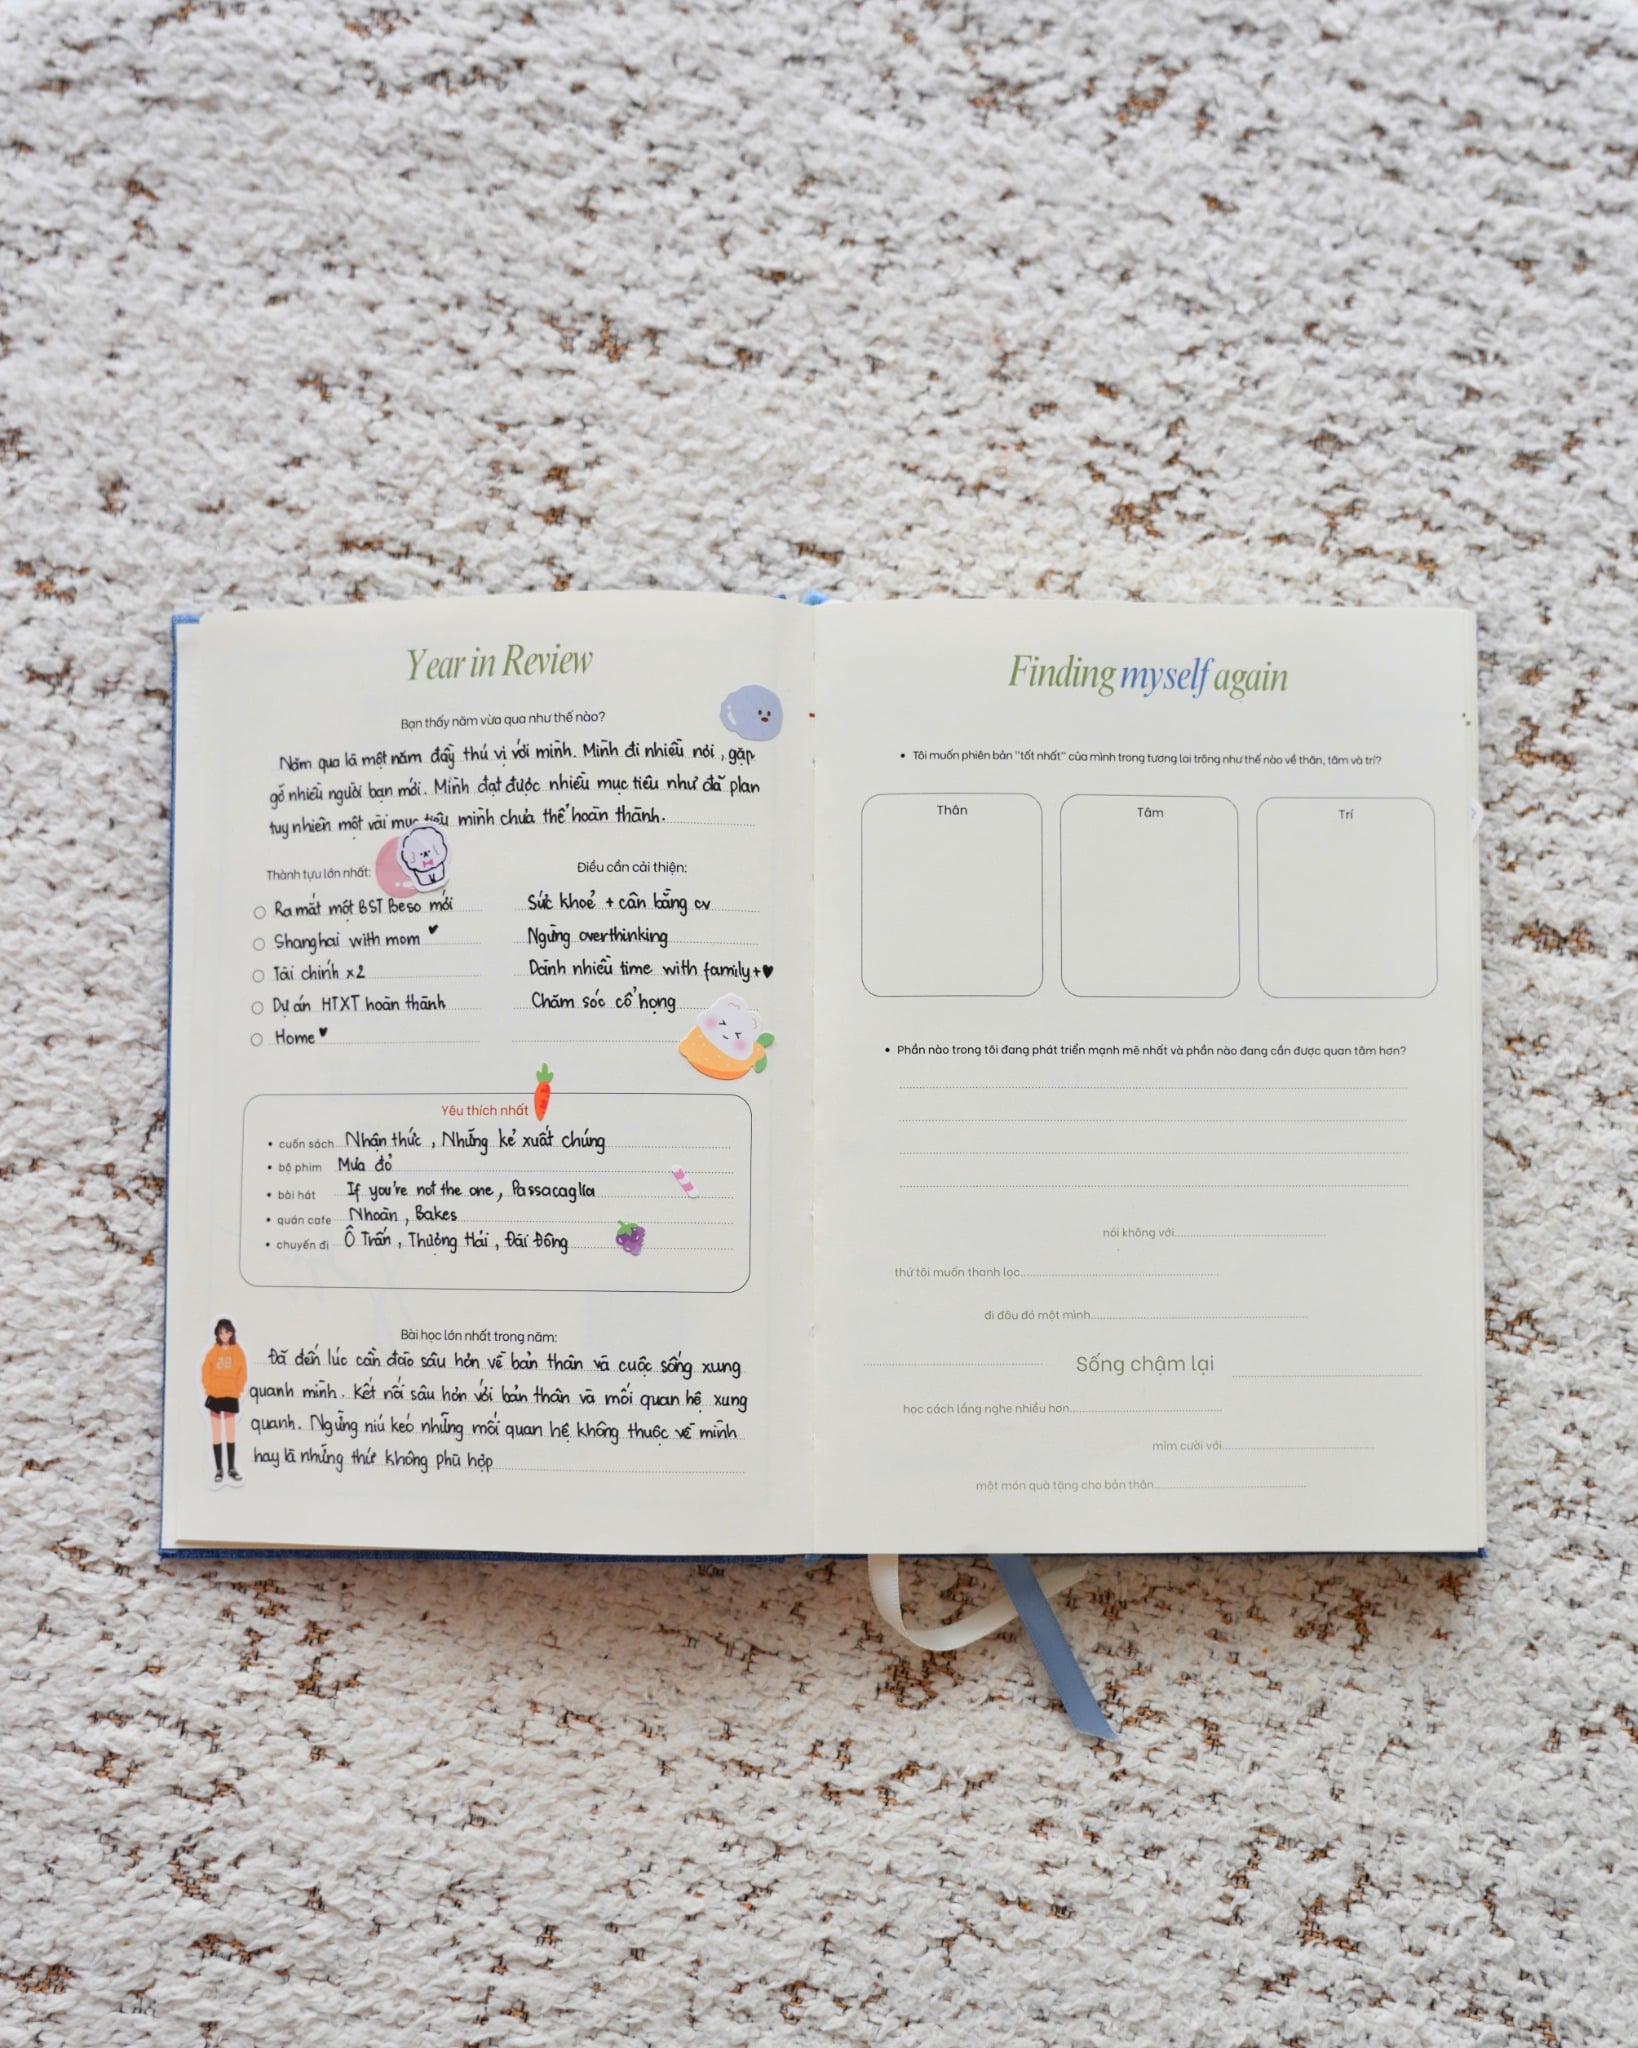 Year in Review
Bạn thấy năm vừa qua như thế nào?
Năm qua là một năm đầy thú vị với mình. Mình đi nhiều nơi, gặp
gỡ nhiều người bạn mới. Mình đạt được nhiều mục tiêu như đã plan
tuy nhiên một vài mục tiêu mình chưa thể hoàn thành.
Thành tựu lớn nhất:
Ra mắt một BST Beso mới
Shanghai with mom ♥
Tài chính x2
Dự án HTXT hoàn thành
Home ♥
Điều cần cải thiện:
Sức khoẻ + cân bằng cv
Ngừng overthinking
Dành nhiều time with family + ♥
Chăm sóc cổ họng
Yêu thích nhất
• cuốn sách Nhận thức, Những kẻ xuất chúng
• bộ phim Mưa đỏ
• bài hát If you're not the one, Passacaglia
• quán cafe Nhoàn, Bakes
• chuyến đi Ô Trấn, Thượng Hải, Đài Đông
Bài học lớn nhất trong năm:
Đã đến lúc cần đào sâu hơn về bản thân và cuộc sống xung
quanh mình. Kết nối sâu hơn với bản thân và mối quan hệ xung
quanh. Ngừng níu kéo những mối quan hệ không thuộc về mình
hay là những thứ không phù hợp
28
Finding myself again
• Tôi muốn phiên bản "tốt nhất" của mình trong tương lai trông như thế nào về thân, tâm và trí?
Thân
Tâm
Trí
• Phần nào trong tôi đang phát triển mạnh mẽ nhất và phần nào đang cần được quan tâm hơn?
nói không với
thứ tôi muốn thanh lọc
đi đâu đó một mình
Sống chậm lại
học cách lắng nghe nhiều hơn
mỉm cười với
một món quà tặng cho bản thân